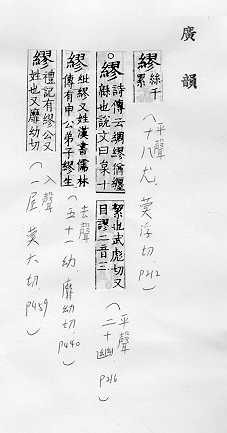 廣韻
繆 絲千累
(平聲
十八尤,莫浮切.P212)
繆 詩傳云綢繆猶纏緜也說文曰枲十絜也武彪切又目謬二音三
(平聲
二十幽 P216)
繆 紕繆又姓漢書儒林傳有申公弟子繆生
(去聲
五十一幼.靡幼切.P440)
繆 禮記有繆公又姓也又靡幼切
(入聲
一屋 莫六切 P459)